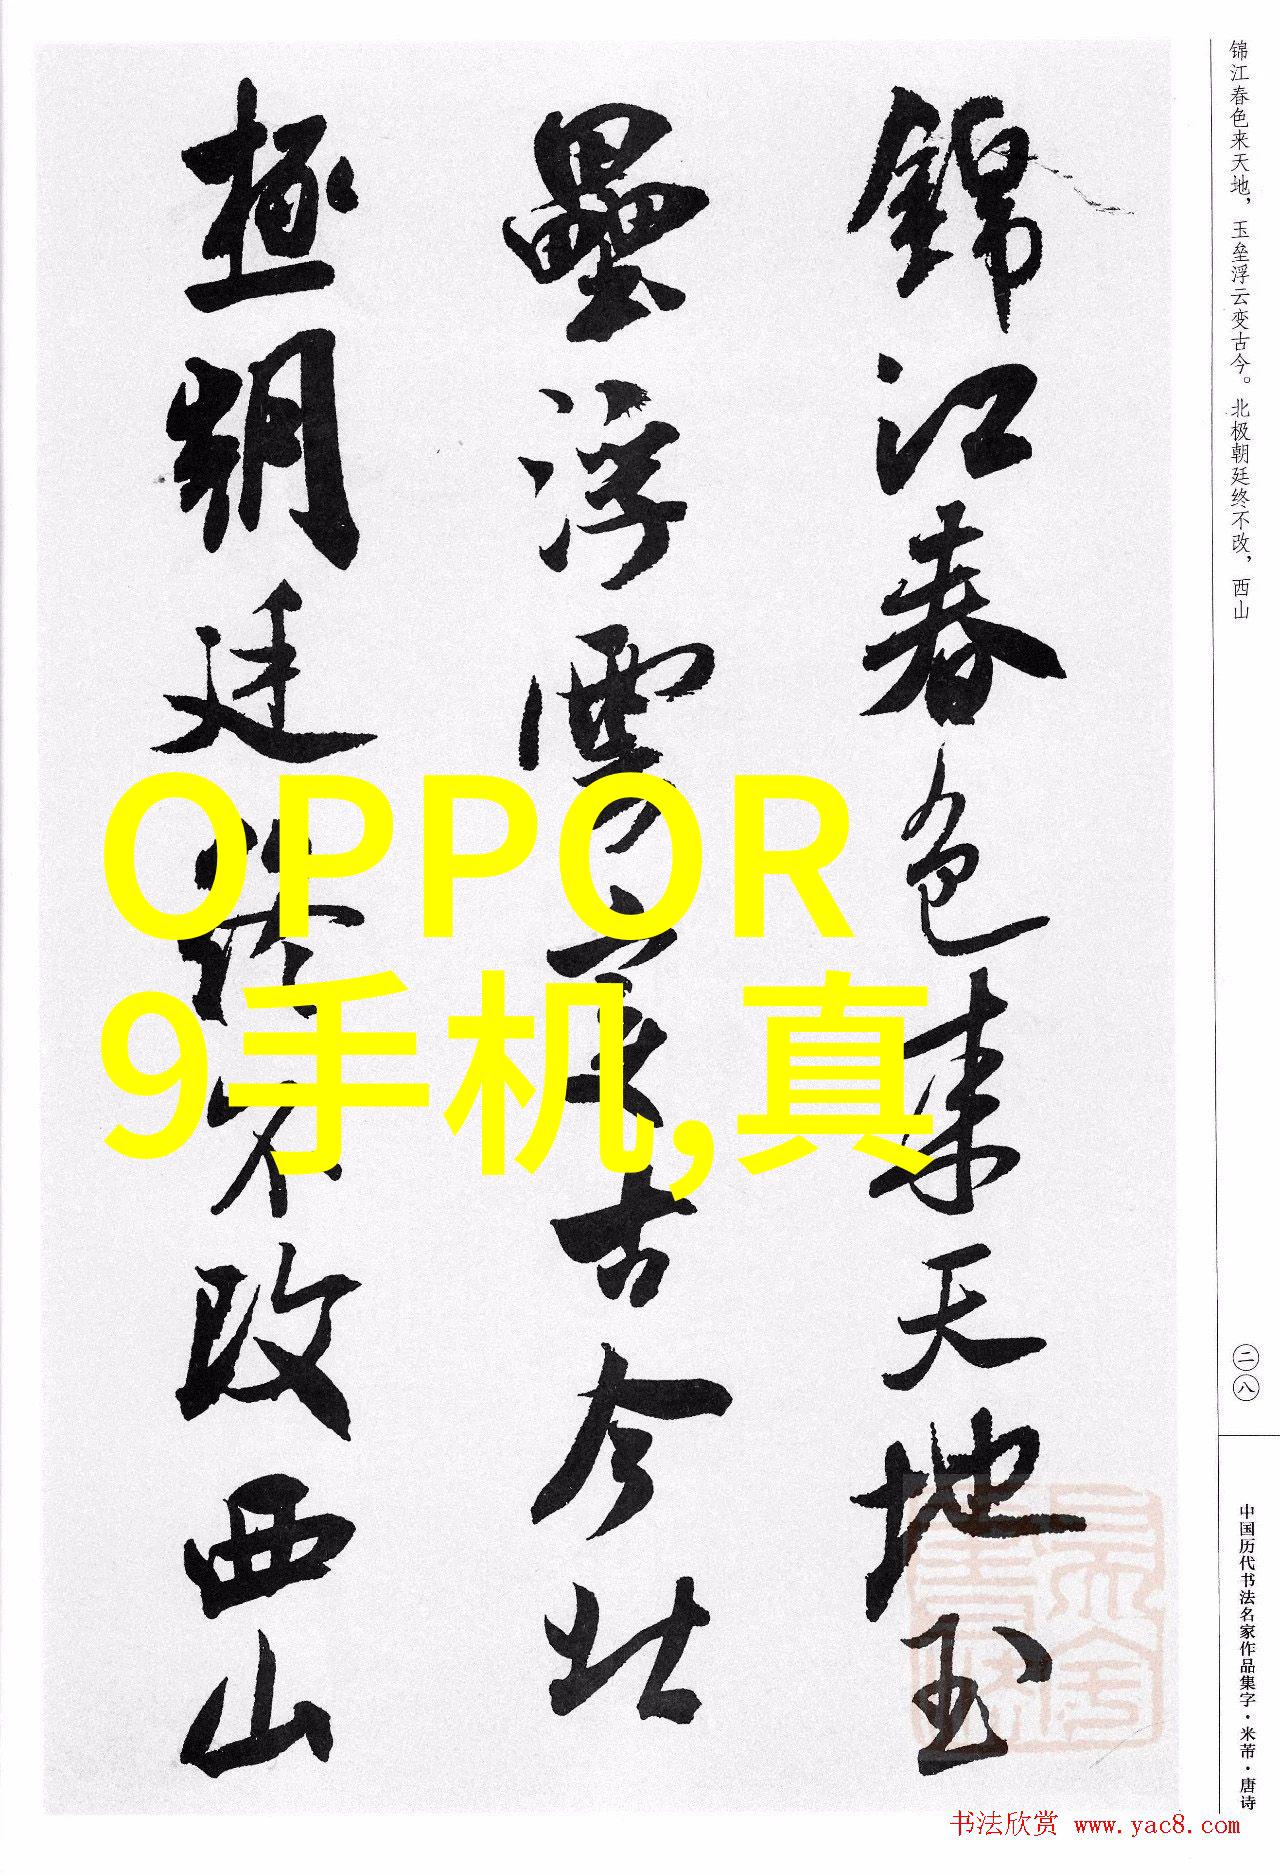 錦江春色来天地玉
壘浮雲变古今北
極朝廷終不改西山
OPPOR
9手机,真
锦江春色来天地，玉垒浮云变古今。北极朝廷终不改，西山
二八
中国历代书法名家作品集字·米芾·唐诗
书法欣赏 www.yac8.com